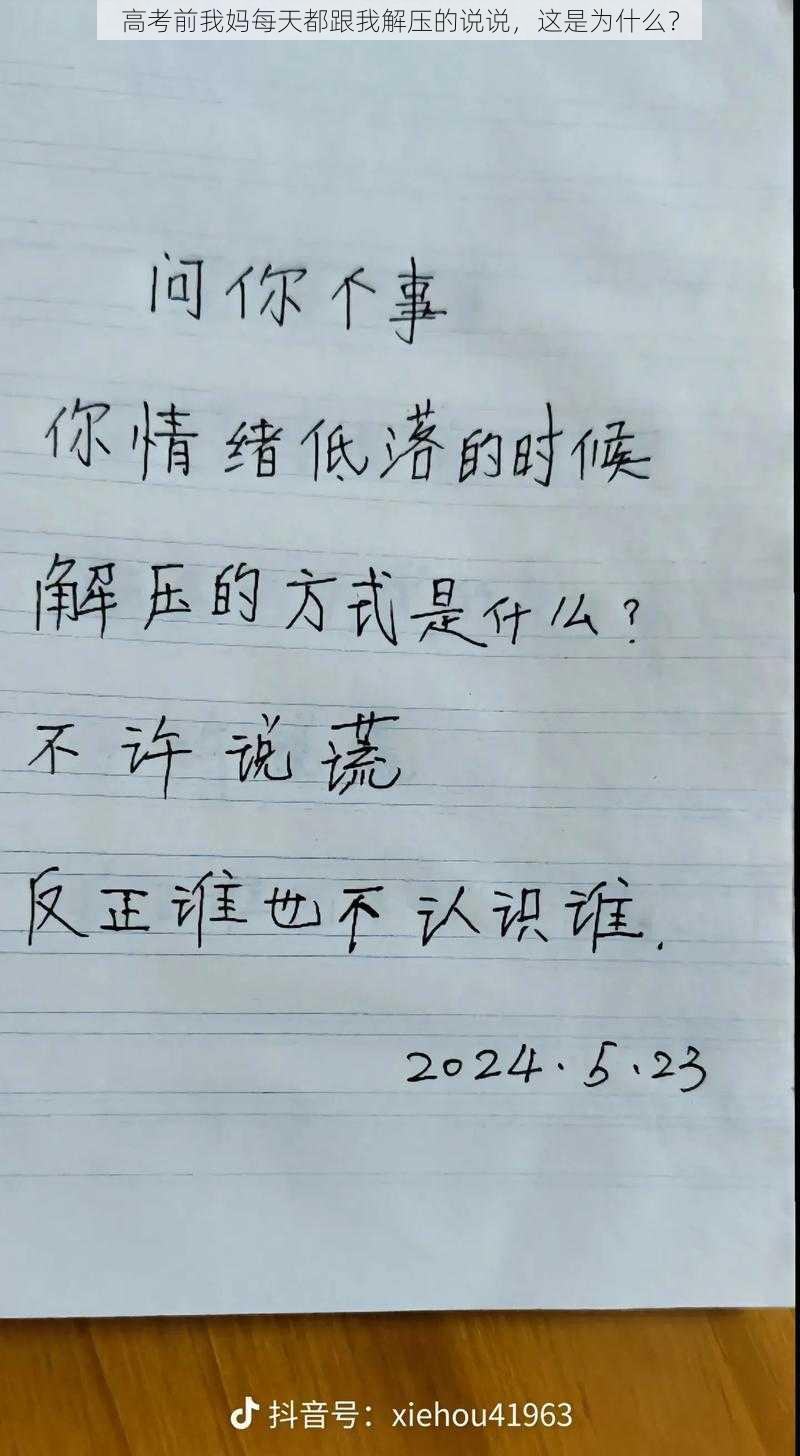 高考前我妈每天都跟我解压的说说，这是为什么？
问你个事
你情绪低落的时候
解压的方式是什么？
不许说谎
反正谁也不认识谁.
2024.5.23
抖音号：xiehou41963